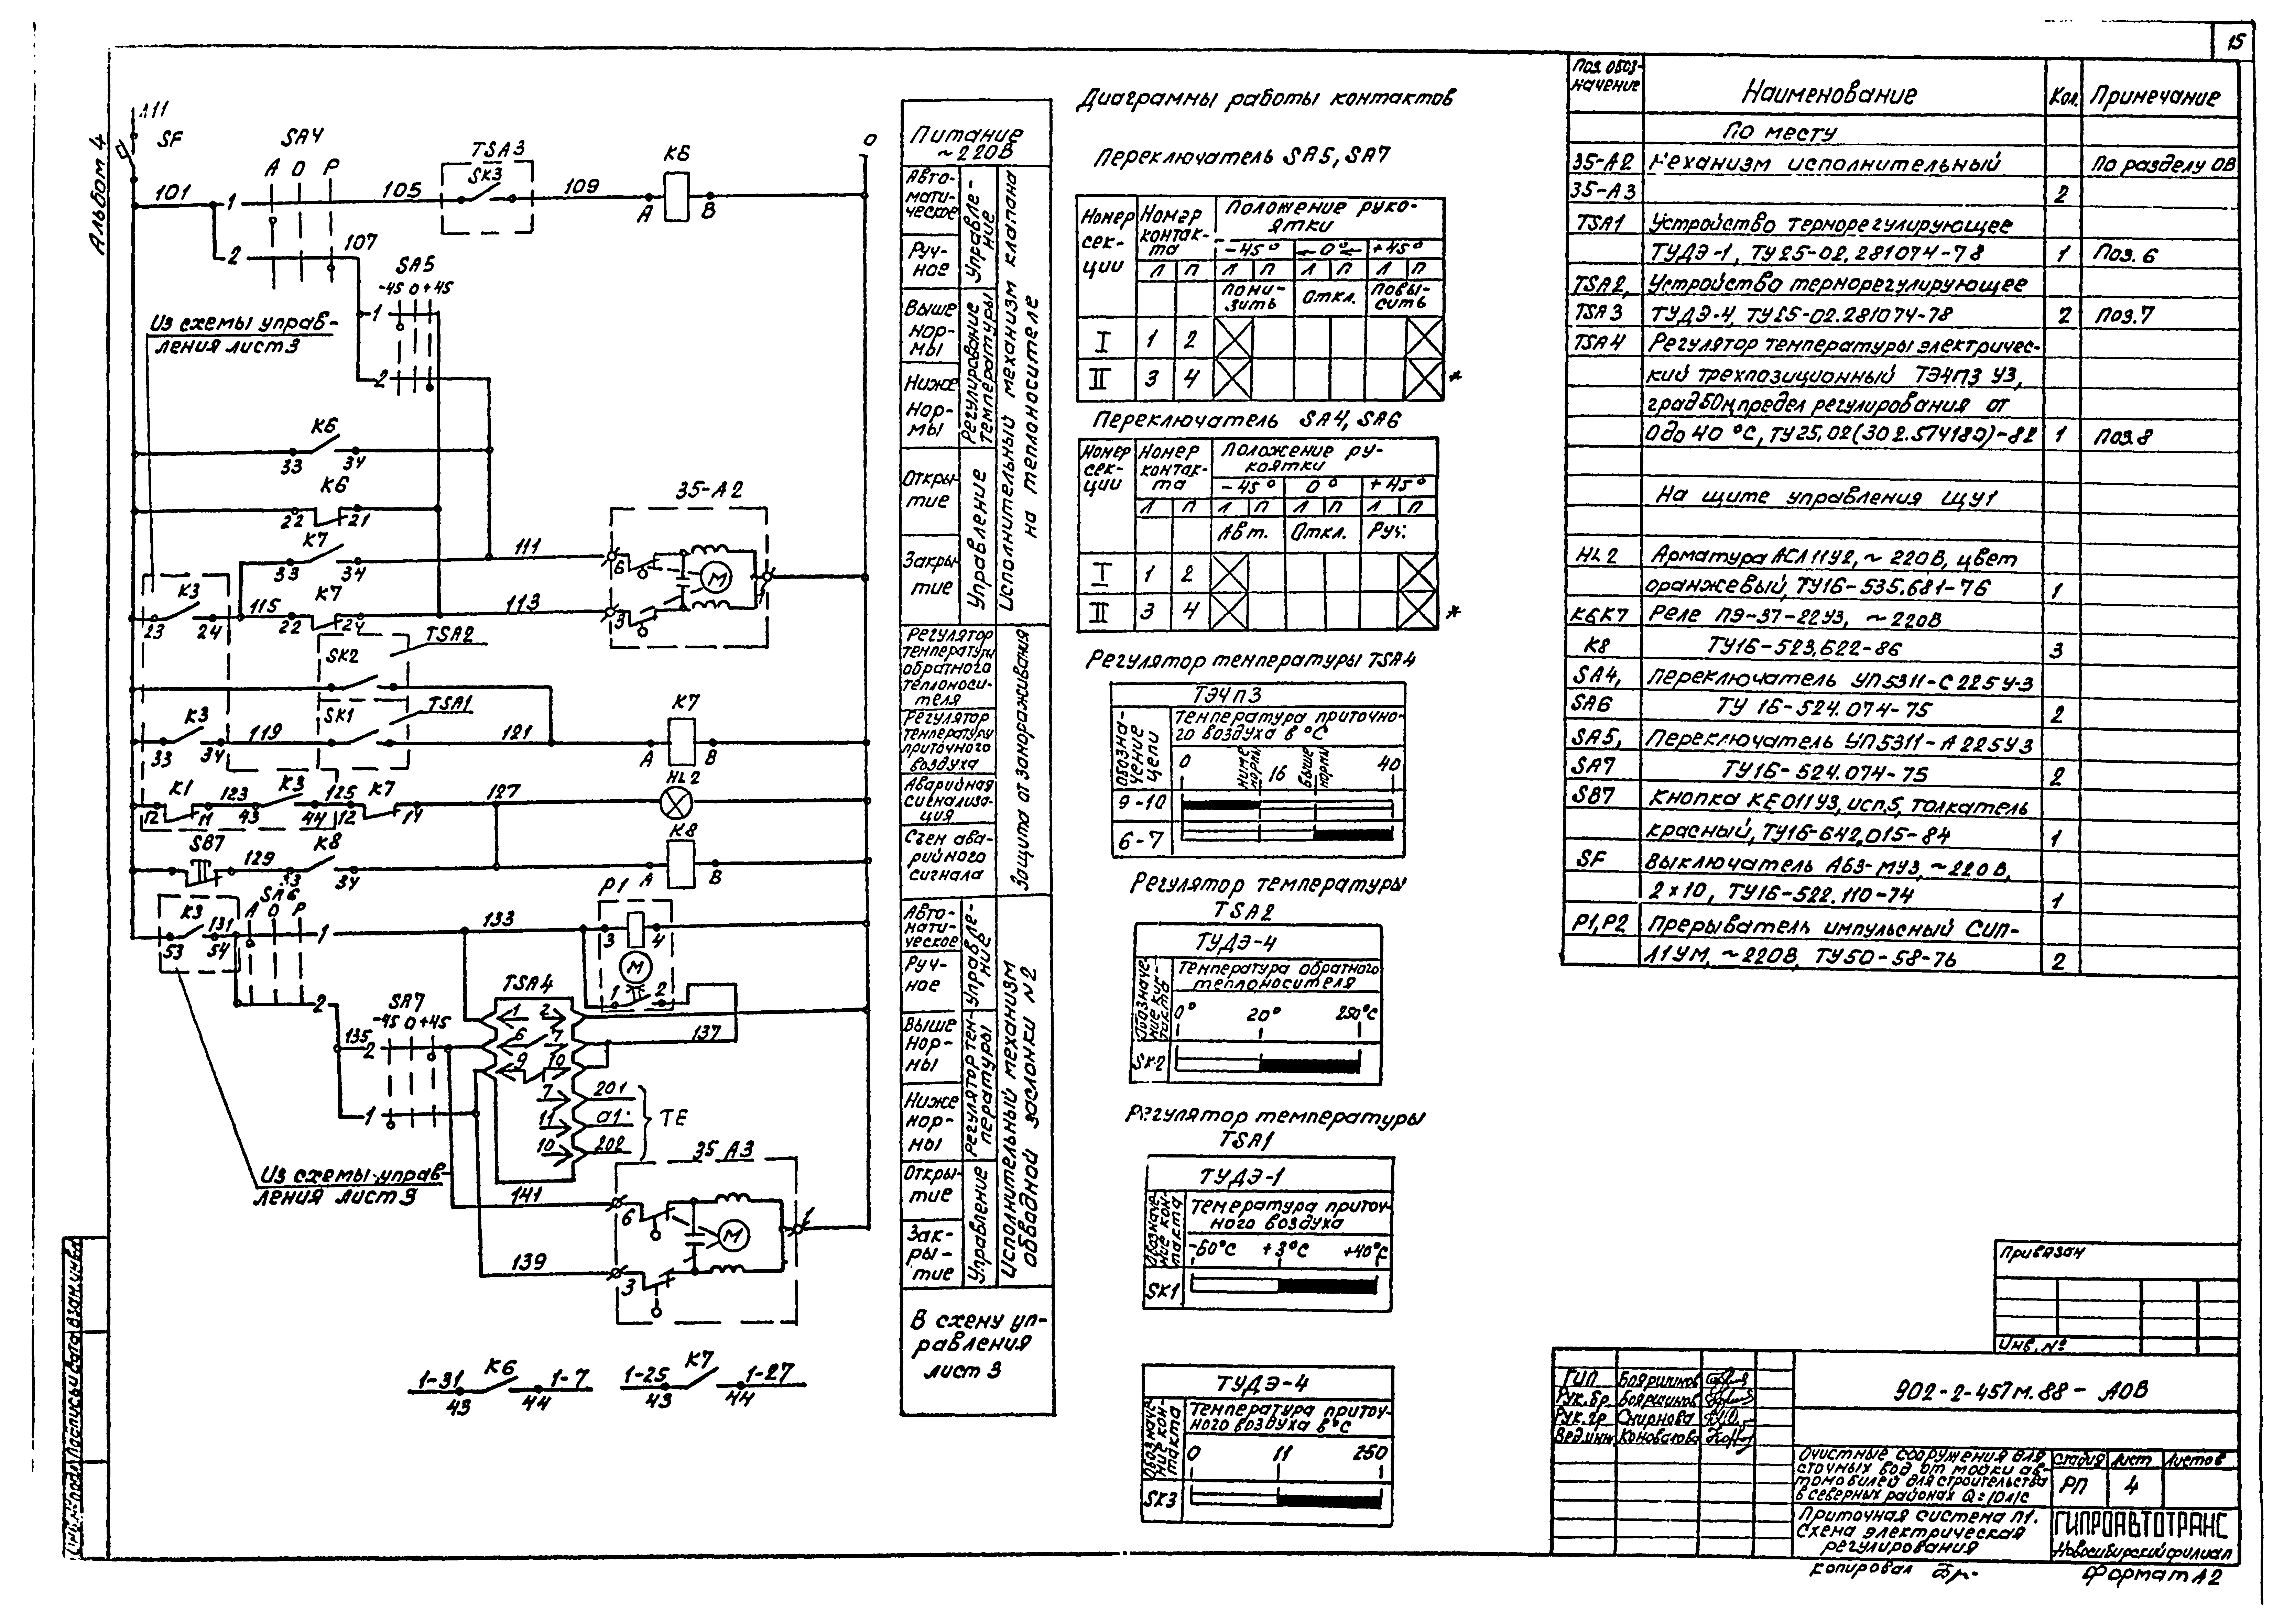 15
Альбом 4
А11
SF
SA4
А О Р
TSA3
SK3
К6
101
1
105
109
А
В
0
2
107
SA5
-45 0 +45
1
2
Из схемы управ-
ления лист 3
К6
33 34
К6
22 21
К7
33 34
111
35-А2
6
М
1
3
К3
23 24
115
К7
22 24
113
TSA2
SK2
TSA1
SK1
К3
33 34
119
121
К7
А
В
HL2
К1
12 11
123
43
К3
44
125
12
К7
14
127
К8
SB7
129
33
К8
34
А
В
SA6
А О Р
К3
53 54
131
1
133
Р1
3 4
М
1 2
2
TSA4
1 2
6 7
9 10
7
11
10
137
201
а1
202
ТЕ
SA7
-45 0 +45
135
2
1
Из схемы управ-
ления лист 3
35 А3
141
6
М
1
139
3
1-31
К6
1-7
43 44
1-25
К7
1-27
43 44
Питание
~220В
Авто-
мати-
ческое
Руч-
ное
Управле-
ние
Выше
нор-
мы
Ниже
нор-
мы
Регулирование
температуры
Откры-
тие
Закры-
тие
Управление
Исполнительный механизм клапана
на теплоносителе
Регулятор
температуры
обратного
теплоноси-
теля
Регулятор
температуры
приточного
воздуха
Аварийная
сигнализа-
ция
Съем ава-
рийного
сигнала
Защита от замораживания
Авто-
мати-
ческое
Руч-
ное
Управле-
ние
Выше
нор-
мы
Ниже
нор-
мы
Регулятор тем-
пературы
Откры-
тие
Зак-
ры-
тие
Управление
Исполнительный механизм
обводной заслонки №2
В схему уп-
равления
лист 3
Диаграммы работы контактов
Переключатель SA5, SA7
Номер
сек-
ции
Номер
контак-
та
Положение руко-
ятки
-45° 0° +45°
Л П Л П Л П Л П
Пони-
зить
Откл.
Повы-
сить
I 1 2
II 3 4
*
Переключатель SA4, SA6
Номер
сек-
ции
Номер
контак-
та
Положение ру-
коятки
-45° 0° +45°
Л П Л П Л П Л П
Авт. Откл. Руч.
I 1 2
II 3 4
*
Регулятор температуры TSA4
ТЭ4П3
Обозна-
чение
цепи
Температура приточно-
го воздуха в °С
0
ниже
нормы
16
выше
нормы
40
9-10
6-7
Регулятор температуры
TSA2
ТУДЭ-4
Обозначе-
ние кон-
такта
Температура обратного
теплоносителя
0° 20° 250°С
SK2
Регулятор температуры
TSA1
ТУДЭ-1
Обозначе-
ние кон-
такта
Температура приточ-
ного воздуха
-60°С +3°С +40°С
SK1
ТУДЭ-4
Обозначе-
ние кон-
такта
Температура приточ-
ного воздуха в °С
0 11 250
SK3
Поз. обоз-
начение
Наименование
Кол.
Примечание
По месту
35-А2 Механизм исполнительный По разделу ОВ
35-А3 2
TSA1 Устройство терморегулирующее
ТУДЭ-1, ТУ25-02.281074-78 1 Поз. 6
TSA2, Устройство терморегулирующее
TSA3 ТУДЭ-4, ТУ25-02.281074-78 2 Поз. 7
TSA4 Регулятор температуры электричес-
кий трехпозиционный ТЭ4П3 У3,
град 50м, предел регулирования от
0 до 40 °С, ТУ25.02(302.574180)-82 1 Поз. 8
На щите управления ЩУ1
HL2 Арматура АСЛ11У2, ~220В, цвет
оранжевый, ТУ16-535.681-76 1
К6К7 Реле ПЭ-37-22У3, ~220В
К8 ТУ16-523.622-86 3
SA4, Переключатель УП5311-С225У-3
SA6 ТУ 16-524.074-75 2
SA5, Переключатель УП5311-А225У3
SA7 ТУ16-524.074-75 2
SB7 Кнопка КЕ011У3, исп.5, толкатель
красный, ТУ16-642.015-84 1
SF Выключатель АБ3-МУ3, ~220В,
2×10, ТУ16-522.110-74 1
Р1, Р2 Прерыватель импульсный СИП-
Л1УМ, ~220В, ТУ50-58-76 2
Привязан
Инв. №
ГИП Бояршинов
Рук. бр. Бояршинов
Рук. гр. Смирнова
Вед. инж. Коновалова
902-2-457м.88 - АОВ
Очистные сооружения для
сточных вод от мойки ав-
томобилей для строительства
в северных районах Q=10л/с
Стадия Лист Листов
РП 4
Приточная система П1.
Схема электрическая
регулирования
ГИПРОАВТОТРАНС
Новосибирский филиал
Копировал
Формат А2
Инв. № подл. Подпись и дата Взам. инв. №